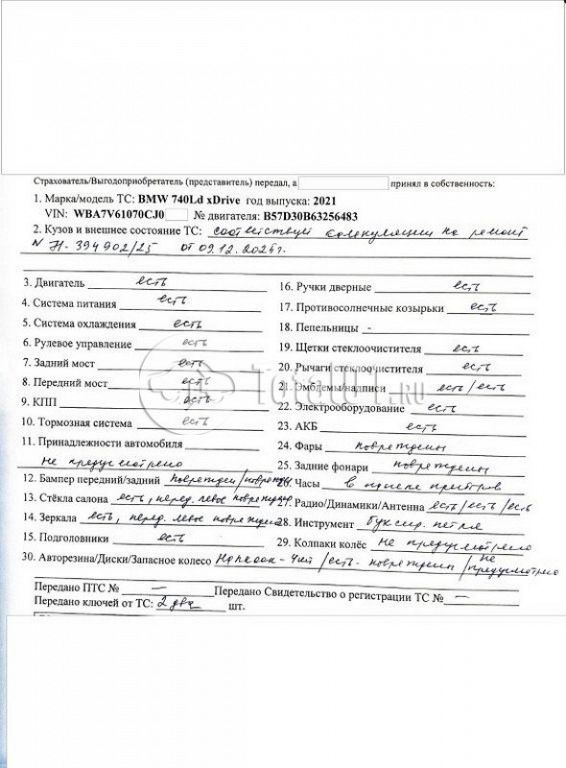 Страхователь/Выгодоприобретатель (представитель) передал, а принял в собственность:
1. Марка/модель ТС: BMW 740Ld xDrive год выпуска: 2021
VIN: WBA7V61070CJ0 № двигателя: B57D30B63256483
2. Кузов и внешнее состояние ТС: соответствует калькуляции на ремонт
N 71-394902/25 от 09.12.2025г.
3. Двигатель есть
4. Система питания есть
5. Система охлаждения есть
6. Рулевое управление есть
7. Задний мост есть
8. Передний мост есть
9. КПП есть
10. Тормозная система есть
11. Принадлежности автомобиля
не предусмотрено
12. Бампер передний/задний поврежден/поврежден
13. Стёкла салона есть, перед. левое повреждено
14. Зеркала есть, перед. левое повреждено
15. Подголовники есть
16. Ручки дверные есть
17. Противосолнечные козырьки есть
18. Пепельницы -
19. Щетки стеклоочистителя есть
20. Рычаги стеклоочистителя есть
21. Эмблемы/надписи есть/есть
22. Электрооборудование есть
23. АКБ есть
24. Фары повреждены
25. Задние фонари повреждены
26. Часы в щитке приборов
27. Радио/Динамики/Антенна есть/есть/есть
28. Инструмент буксир. петля
29. Колпаки колёс не предусмотрено
30. Авторезина/Диски/Запасное колесо - 4шт/есть - поврежден/не предусмотрено
Передано ПТС № — Передано Свидетельство о регистрации ТС № —
Передано ключей от ТС: 2 два шт.
TOTAL01.RU